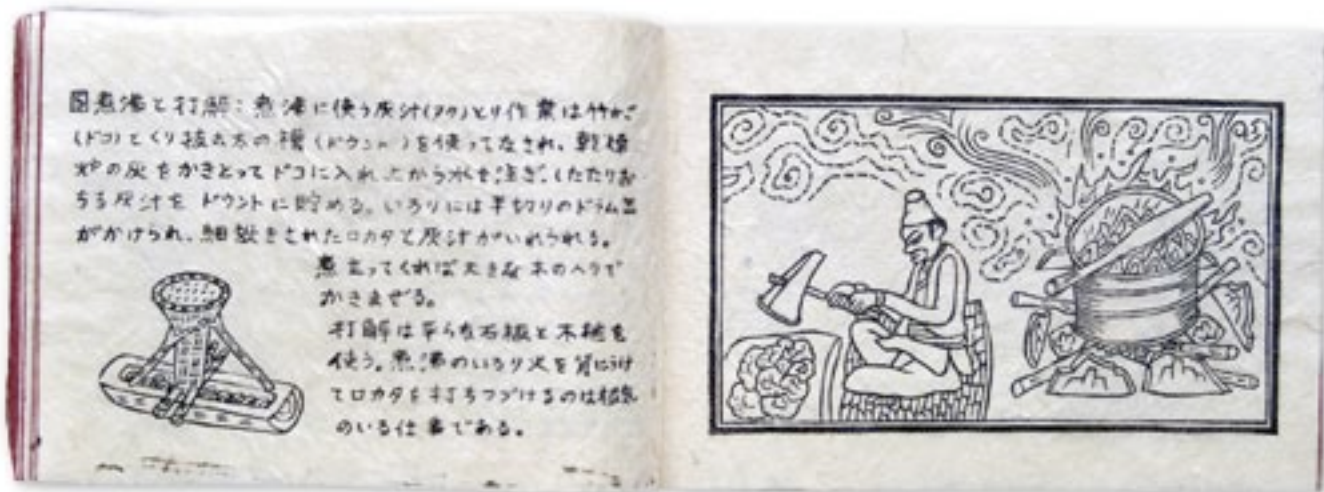 図煮沸と打解：煮沸に使う灰汁(アク)とり作業は竹かご
(ドコ)とくり抜た木の槽(ドウント)を使ってなされ、乾燥
炉の灰をかきとってドコに入れ上から水を注ぎ、したたりお
ちる灰汁をドウントに貯める。いろりには半切りのドラム缶
がかけられ、細裂きされたロカタと灰汁がいれられる。
煮立ってくれば大きな木のヘラで
かきまぜる。
打解は平らな石板と木槌を
使う。煮沸のいろり火を背にうけ
てロカタを打ちつづけるのは根気
のいる仕事である。